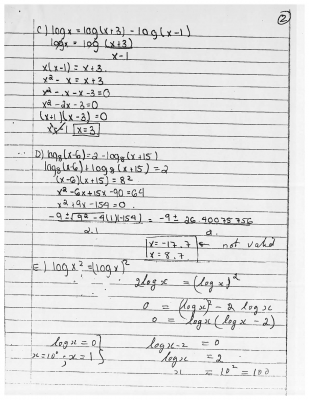 ②
C) log x = log(x+3) - log(x-1)
log x = log (x+3)
x-1
x(x-1) = x+3
x² - x = x+3
x² - x - x - 3 = 0
x² - 2x - 3 = 0
(x+1)(x-3) = 0
x=-1 x=3
D) log₈(x-6) = 2 - log₈(x+15)
log₈(x-6) + log₈(x+15) = 2
(x-6)(x+15) = 8²
x² - 6x + 15x - 90 = 64
x² + 9x - 154 = 0
-9 ± √9² - 4(1)(-154) = -9 ± 26.40075756
2.1 2
x = -17.7 ← not valid
x = 8.7
E) log x² = (log x)²
2 log x = (log x)²
0 = (log x)² - 2 log x
0 = log x (log x - 2)
log x = 0 log x - 2 = 0
x = 10⁰ ; x = 1 log x = 2
x = 10² = 100